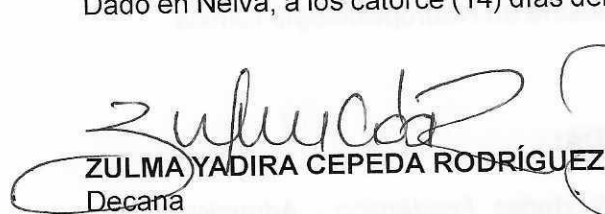 Dado en Neiva, a los catorce (14) días del
ZULMA YADIRA CEPEDA RODRÍGUEZ
Decana